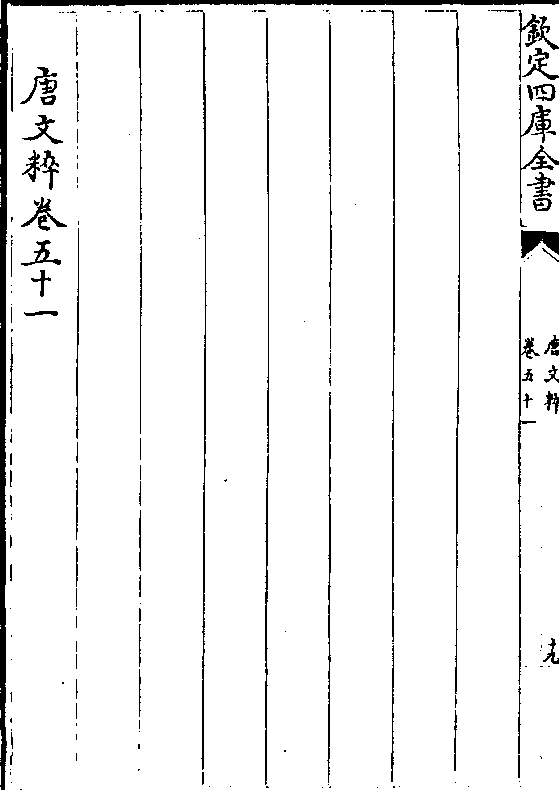 欽定四庫全書
唐文粹
卷五十一
十九
唐文粹卷五十一